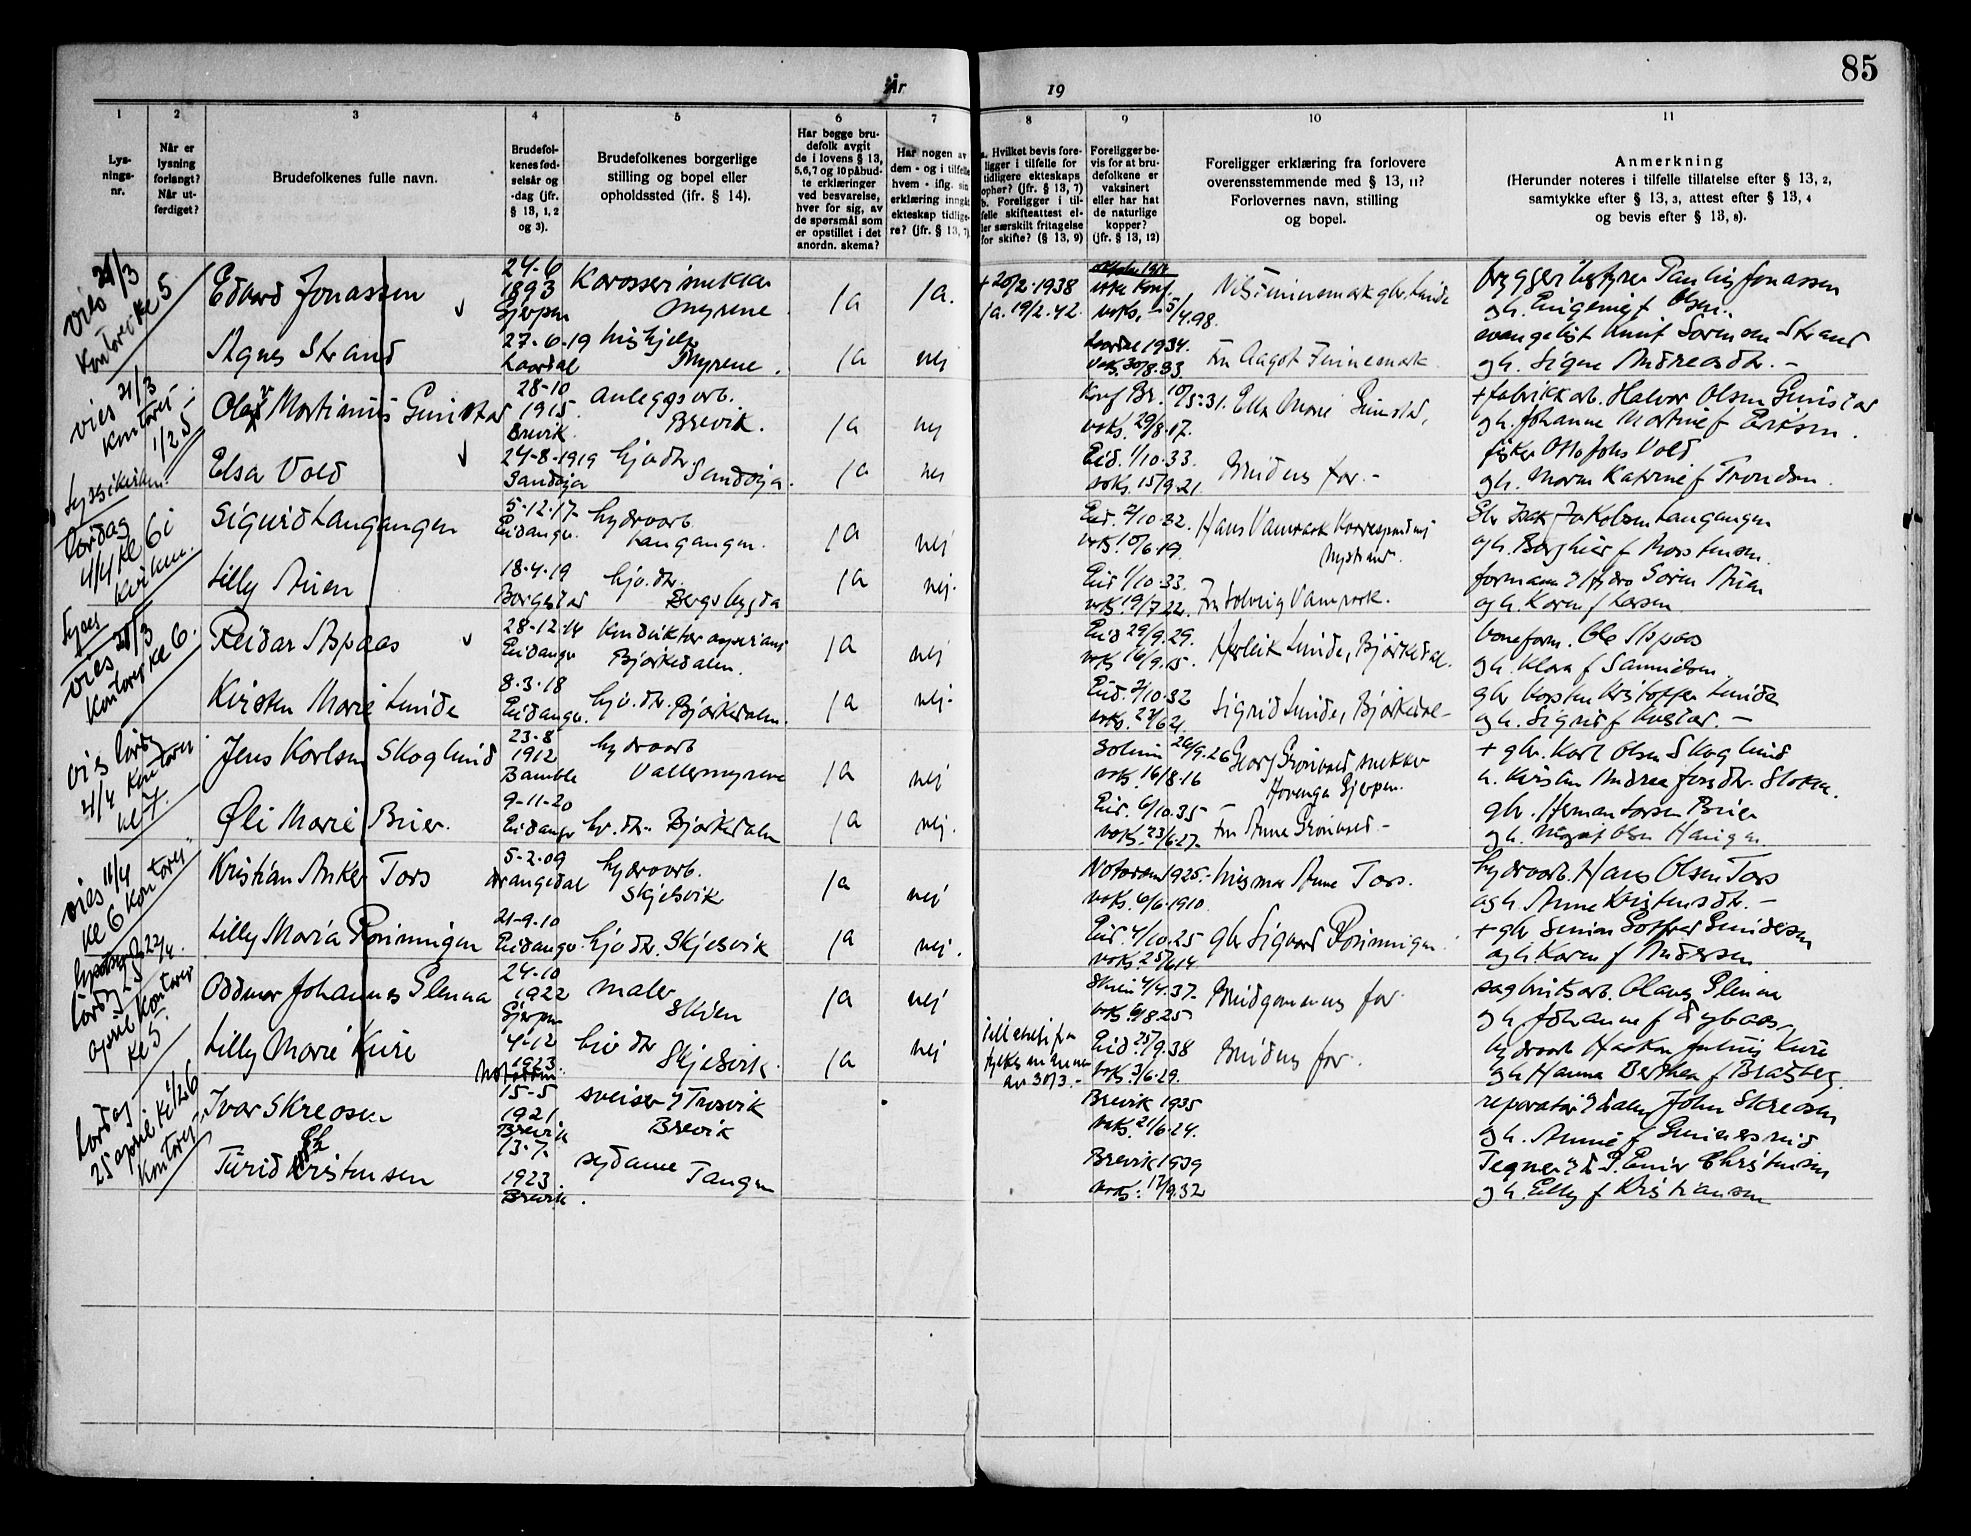 85
År
19
1
2
3
4
5
6
7
8
9
10
11
Lys-
nings-
nr.
Når er
lysning
forlangt?
Når ut-
ferdiget?
Brudefolkenes fulle navn.
Brudefol-
kenes fød-
selsår og
-dag (jfr.
§ 13, 1, 2
og 3).
Brudefolkenes borgerlige
stilling og bopel eller
opholdssted (ifr. § 14).
Har begge bru-
defolk avgit
de i lovens § 13,
5,6,7 og 10 påbud-
te erklæringer
ved besvarelse,
hver for sig, av
de spørsmål som
er opstillet i det
anordn. skema?
Har nogen av
dem - og i tilfelle
hvem - iflg. sin
erklæring inngå
ekteskap tidlige-
re? (jfr. § 13, 7)
a. Hvilket bevis fore-
ligger i tilfelle for
tidligere ekteskaps
opher? (jfr. § 13, 7)
b. Foreligger i til-
felle skifteattest el-
ler særskilt fritagelse
for skifte? (§ 13, 9)
Foreligger be-
vis for at bru-
defolkene er
vaksinert
eller har hat
de naturlige
kopper?
(jfr. § 13, 12)
Foreligger erklæring fra forlovere
overensstemmende med § 13, 11?
Forlovernes navn, stilling
og bopel.
Anmerkning
(Herunder noteres i tilfelle tillatelse efter § 13, 2,
samtykke efter § 13, 3, attest efter § 13, 4
og bevis efter § 13, 8).
vies 21/3
Kontoret ke 5
Edvard Jonassen
24-6
1893
Gjerpen
Karosserisnekker
Myrene
ja
ja.
+ 20/2-1938
ja. 19/2.42.
ikke konf.
vaks. 5/4.98.
Nils Finnemark gbr. Lunde
Jonassen
og h. f Olsen.
Agnes Strand
27-6-19
Laardal
hushjelp
Myrene.
ja
nej
Laardal 1934.
vaks. 30/8.33.
Fru Aagot Finnemark
evangelist Knut Sorensen Strand
og h. Signe Andreasdtr. -
vies 21/3
kontoret
1/2 5
Olav Martinius Gunstad
28-10
1915.
Brevik.
anleggsarb.
Brevik.
ja
nej
Konf Br. 10/5-31.
vaks. 29/8-17.
Ella Marie Gunstad,
+ fabrikkarb. Halvor Olsen Gunstad
og h. Johanne Martine f Eriksen.
Elsa Vold
24-8-1919
Sandøya
hjv. dtr.
Sandøya.
ja
nej
Eid. 1/10-33.
vaks. 15/9-21.
Brudens far. -
fisker Otto Johs Vold
og h. Maren Katrine f Trondsen.
lørdag
4/4 ke 6 i
kirken.
Sigurd Langangen
5-12-17
Eidanger
hydroarb
Langangen.
ja
nej
Eid. 2/10-32.
vaks. 10/6.19.
Hans Vamråk
Nystrand.
Gbr Isak Jakobsen Langangen
og h. Borghild f
Lilly Auen
18-4-19
Borgestad
hjv. dtr.
Bergsbygda
ja
nej.
Eid 1/10-33.
vaks. 19/7 22.
Fru Solveig Vamråk.
formann v/ Hydro Soren Auen
og h. Karen f Larsen.
vies 28/3
Kontoret ke 6.
Reidar Aspaas
28-12-14
Eidanger
Konduktør
Bjørkedalen.
ja
nej
Eid 29/9.29.
vaks 16/9.15.
Herleik Lunde, Bjørkedal.
baneform. Ole Aspaas
og h. Klara f Samuelsen
Kirsten Marie Lunde
8-3-18
Eidanger.
hjv. dtr. Bjørkedalen.
ja
nej-
Eid. 2/10-32
Sigrid Lunde, Bjørkedal-
gbr Karsten Kristoffer Lunde
og h. Sigrid f -
vies lørdag
4/4 kontoret
ke 7.
Jens Karlsen Skoglund
23-8
1912
Bamble
hydroarb
Vallermyrene
ja
nej
Solum 26/9.26
vaks. 16/8-16
Georg Grønvold, snekker
Hovenga Gjerpen.
+ gbr. Karl Olsen Skoglund
h. Kirstine Andrea
Øli Marie Brier.
9-11-20
Eidanger
hv. dtr. Bjørkedalen
ja
nej.
Eid. 6/10.35
vaks. 23/6-27-
Fru Anne Grønvold -
gbr. Herman Larsen Brier
vies 11/4
ke 6 kontoret
Kristian Anker Tors
5-2-09
Drangedal
hydroarb.
Skjelsvik
ja
nej
Notodden 1925-
vaks. 6/6.1910.
husmor Anne Tors.
hydroarb. Hans Olsen Tors
og h. Anne Kristensdtr. -
Lilly Maria Rønningen
21-9-10
Eidanger
hjv dtr. Skjelsvik
ja
nej.
Eid. 4/10.25
vaks. 25/6 14
gbr Sigvard Rønningen.
+ gbr Simon Gotfred Gundersen
og h Karen f Andersen
lørdag 25
april Kontoret
ke 5.
Oddmar Johannes Plenna
24-10
1922
Gjerpen
maler
Skien
ja
nej
Skien 4/4.37-
vaks. 6/8.25
Brudgommens far
sagbruksarb. Olaus Plenna
og h. Johanne f
Lilly Marie Kure
4-12
1923
Notodden
hjv dtr
Skjelsvik.
ja
nej
av 30/3.-
Eid. 25/9.38
vaks. 3/6.29.
Brudens far.
hydroarb Haakon Julius Kure
og h Hanna Berthea f Bratsberg.
lørdag
25 april ke 1/2 6
kontoret
Ivar Skreosen
15-5
1921
Brevik
sveiser v/ Trosvik
Brevik
Brevik 1935
vaks. 21/6.24.
reparatør v/ Dalen John Skreosen
og h. Annie f
Turid Christensen
13-7-
1923.
Brevik.
sydame Tangen
Brevik 1939
vaks: 17/9.32
Tegner v/ D. P. Einar Christensen
og h. Elly f Kristiansen